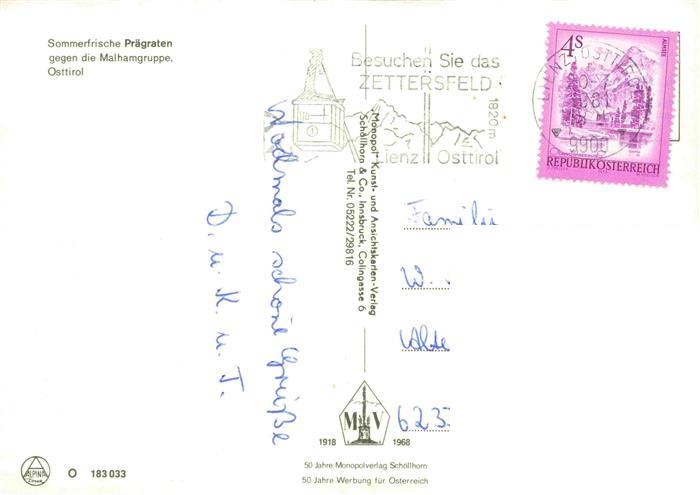 Sommerfrische Prägraten
gegen die Malhamgruppe,
Osttirol
Besuchen Sie das
ZETTERSFELD
1820 m
Lienz Osttirol
4S
ALMSEE
REPUBLIK ÖSTERREICH
LIENZ, OSTTIROL
9900
Nochmals schöne Grüße
D. u. K. u. T.
"Monopol" Kunst- und Ansichtskarten-Verlag
Schöllhorn & Co., Innsbruck, Colingasse 6
Tel. Nr. 05222/29816
Familie
W.
Alte
623
M V
1918 1968
50 Jahre Monopolverlag Schöllhorn
50 Jahre Werbung für Österreich
ALPINA
Druck
O 183 033